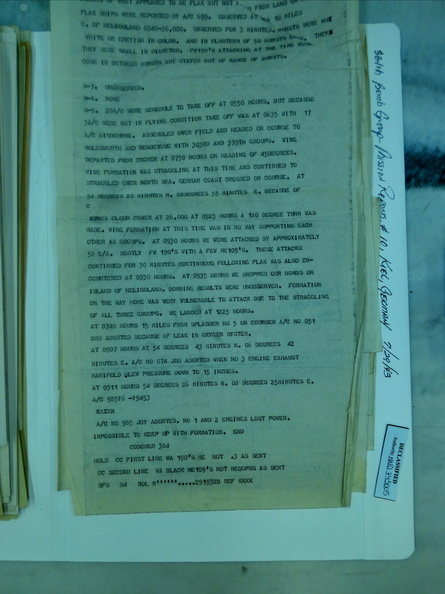 FLAK SHIPS WERE REPORTED BY A/C 699. OBSERVED AT 10 MILES
E. OF HELIGOLAND 0940-26,000. OBSERVED FOR 3 MINUTES. BURSTS WERE
WHITE OR GREYISH IN COLOR. AND IN CLUSTERS OF 50 BURSTS
THEY WERE SMALL IN DIAMETER. FW190'S ATTACKING AT THE TIME
COME IN BETWEEN BURSTS BUT STAYED OUT OF RANGE OF BURSTS.
S-7. UNOBSERVED.
S-8. NONE
S-9. 20A/C WERE SCHEDULE TO TAKE OFF AT 0550 HOURS, BUT BECAUSE
3A/C WERE NOT IN FLYING CONDITION TAKE OFF WAS AT 0635 WITH 17
A/C AIRBOURNE. ASSEMBLED OVER FIELD AND HEADED ON COURSE TO
MOLESWORTH AND RENDEVOUS WITH 303RD AND 379TH GROUPS. WING
DEPARTED FROM CROMER AT 0750 HOURS ON HEADING OF 45DEGREES.
WING FORMATION WAS STRAGGLING AT THIS TIME AND CONTINUED TO
STRAGGLED OVER NORTH SEA. GERMAN COAST CROSSED ON COURSE. AT
54 DEGREES 20 MINUTES N. 08DEGREES 55 MINUTES E. BECAUSE OF
C
CLOUD COVER AT 26,000 AT 0925 HOURS A 150 DEGREE TURN WAS
MADE. WING FORMATION AT THIS TIME WAS IN NO WAY SUPPORTING EACH
OTHER AS GROUPS. AT 0930 HOURS WE WERE ATTACKED BY APPROXIMATELY
50 E/A. MOSTLY FW 190'S WITH A FEW ME109'S. THESE ATTACKS
CONTINUED FOR 30 MINUTES CONTINUOUS FOLLOWING FLAK WAS ALSO EN-
COUNTERED AT 0930 HOURS. AT 0935 HOURS WE DROPPED OUR BOMBS ON
ISLAND OF HELIGOLAND. BOMBING RESULTS WERE UNOBSERVED. FORMATION
ON THE WAY HOME WAS VERY VULNERABLE TO ATTACK DUE TO THE STRAGGLING
OF ALL THREE GROUPS. WE LANDED AT 1225 HOURS.
AT 0740 HOURS 15 MILES FROM SPLASHER NO 5 ON COURSER A/C NO 051
HAS ABORTED BECAUSE OF LEAK IN OXYGEN SYSTEM.
AT 0907 HOURS AT 54 DEGREES 43 MINUTES N. 06 DEGREES 42
MINUTES E. A/C NO 874 JDG ABORTED WHEN NO 3 ENGINE EXHAUST
MANIFOLD BLEW PRESSURE DOWN TO 15 INCHES.
AT 0911 HOURS 54 DEGREES 26 MINUTES N. 08 DEGREES 25MINUTES E.
A/C
A/C NO 985 JDY ABORTED. NO 1 AND 2 ENGINES LOST POWER.
IMPOSSIBLE TO KEEP UP WITH FORMATION. END
COBOMGR 384
HOLD CC FIRST LINE WA 190'S ME NOT .3 AS SENT
CC SECOND LINE WA BLACK ME109'S NOT AS SENT
384th Bomb Group - Mission Reports # 10, Kiel Germany 7/29/43
DECLASSIFIED
Authority NND 745005